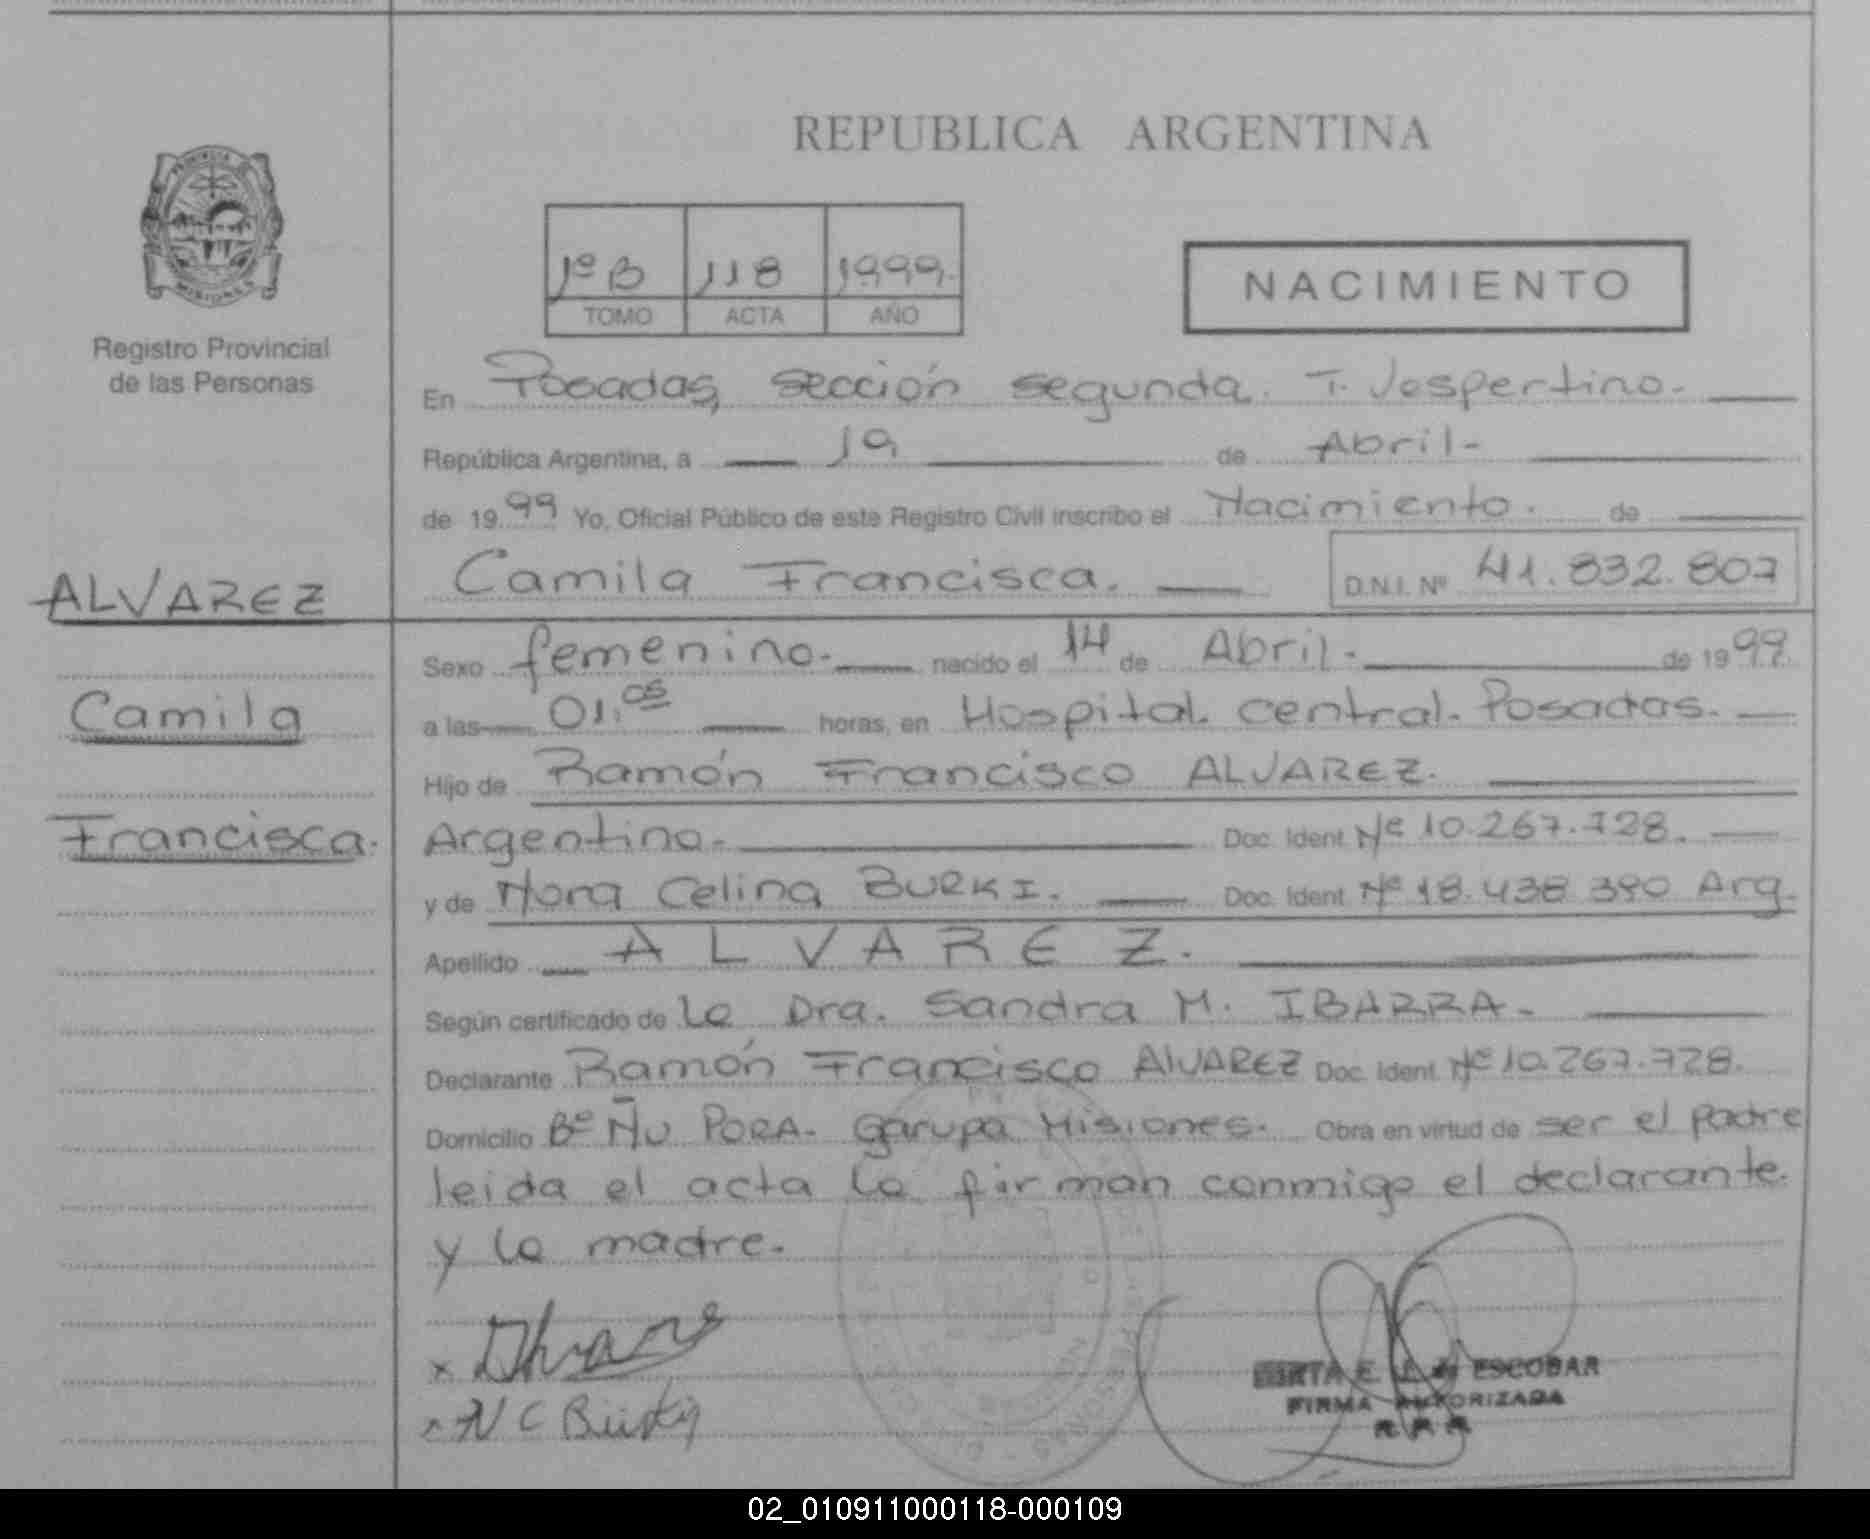 REPUBLICA ARGENTINA
PROVINCIA
MISIONES
Registro Provincial
de las Personas
1º B 118 1999.
TOMO ACTA AÑO
NACIMIENTO
En Posadas, sección segunda. T. Vespertino.
República Argentina, a 19 de Abril.
de 1999 Yo, Oficial Público de este Registro Civil inscribo el Nacimiento. de
Camila Francisca. D.N.I. Nº 41.832.807
ALVAREZ
Camila
Francisca.
Sexo femenino. nacido el 14 de Abril. de 1999.
a las 01,05 horas, en Hospital. central. Posadas.
Hijo de Ramón Francisco ALVAREZ.
Argentino. Doc. Ident. Nº 10.267.728.
y de Nora Celina BURKI. Doc. Ident. Nº 18.438.390 Arg.
Apellido ALVAREZ.
Según certificado de la Dra. Sandra M. IBARRA.
Declarante Ramón Francisco ALVAREZ Doc. Ident. Nº 10.267.728.
Domicilio Bº ÑU PORA. Garupa Misiones. Obra en virtud de ser el padre
leida el acta la firman conmigo el declarante.
y la madre.
x
x N C Burki
E. J. de ESCOBAR
FIRMA AUTORIZADA
02_010911000118-000109